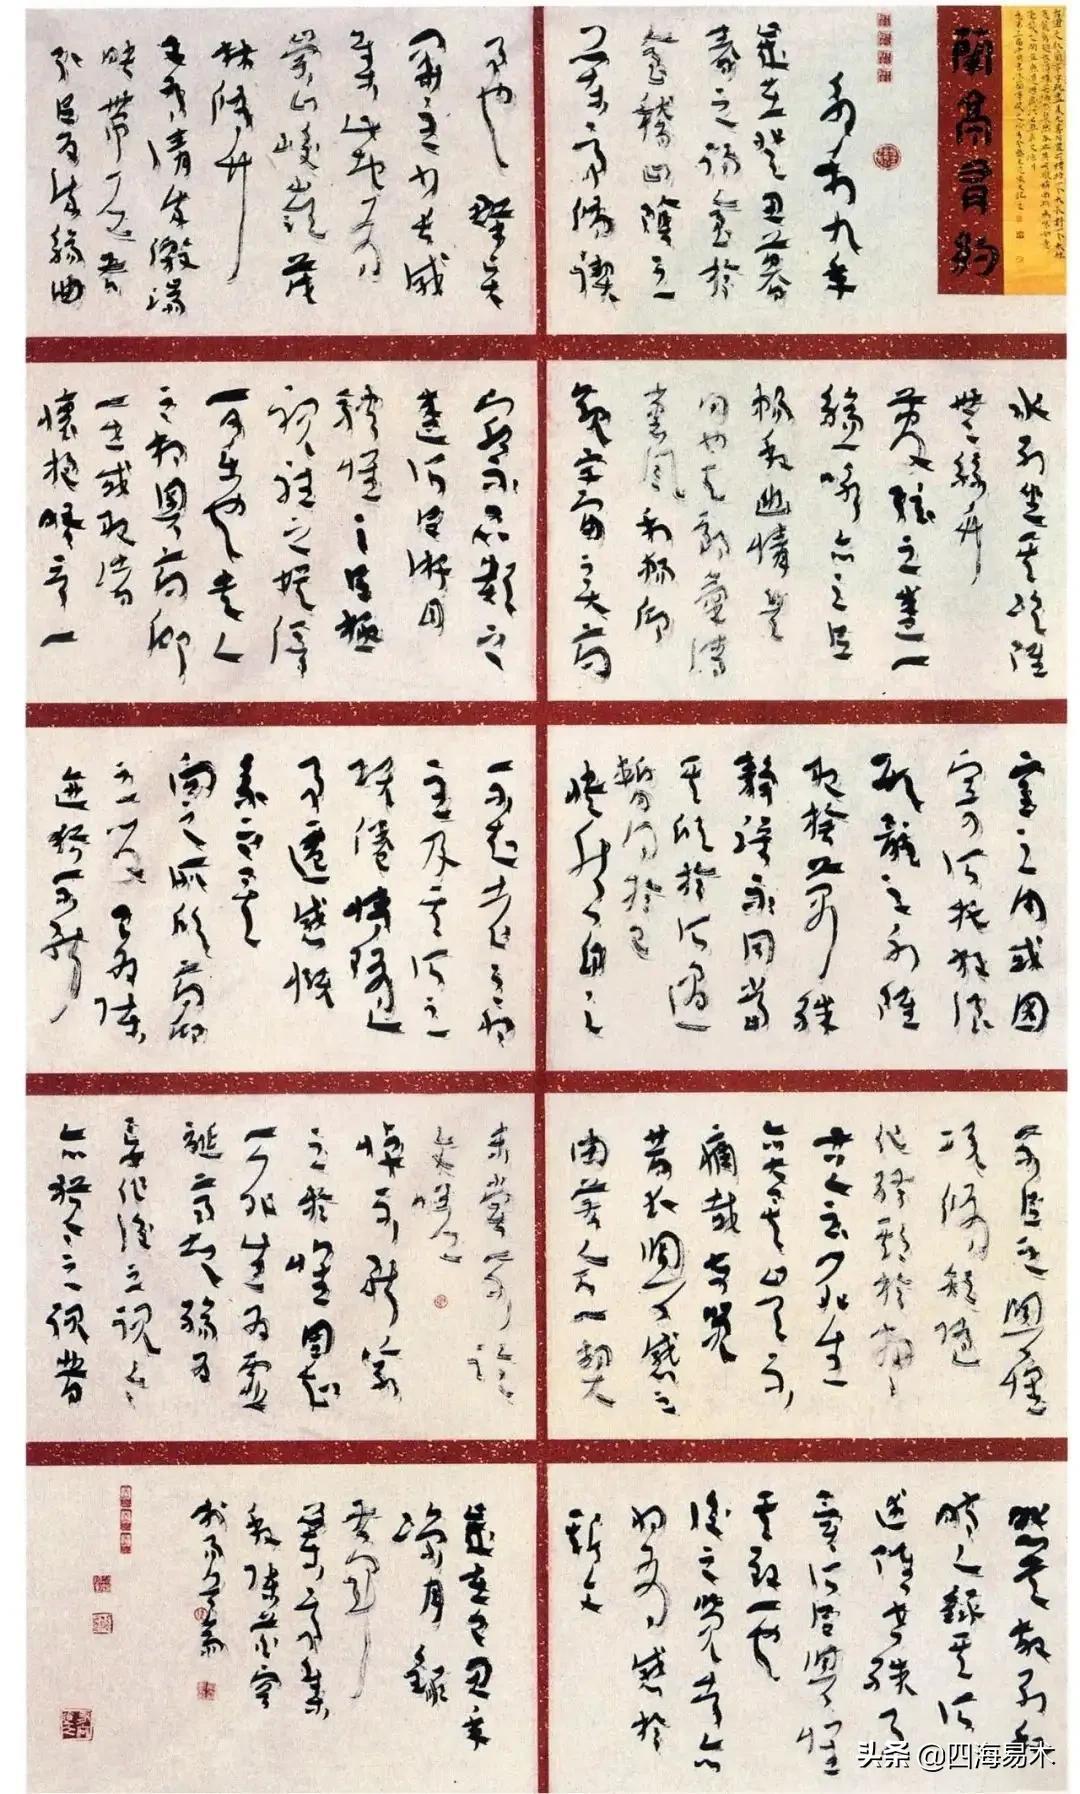 蘭亭
永和九年
歲在癸丑暮
春之初會於
會稽山陰之
蘭亭脩禊
事也群賢
畢至少長咸
集此地有
崇山峻嶺茂
林脩竹
又有清流激湍
映帶左右
引以為流觴曲
水列坐其次雖
無絲竹
管弦之盛一
觴一詠亦足以
暢敘幽情是
日也天朗氣清
惠風和暢仰
觀宇宙之大俯
察品類之
盛所以遊目
騁懷足以極
視聽之娛信
可樂也夫人
之相與俯仰
一世或取諸
懷抱晤言一
室之內或因
寄所託放浪
形骸之外雖
取捨萬殊
靜躁不同當
其欣於所遇
暫得於己
快然自足
不知老之將
至及其所之
既倦情隨
事遷感慨
係之矣
向之所欣俯仰
之間已為陳
跡猶不能
不以之興懷
況脩短隨
化終期於盡
古人云死生
亦大矣豈不
痛哉每覽
昔人興感之
由若合一契
未嘗不臨
文嗟
悼不能喻
之於懷固知
一死生為虛
誕齊彭殤為
妄作後之視今
亦猶今之視昔
悲夫故列敘
時人錄其所
述雖世殊事
異所以興懷
其致一也
後之覽者亦
將有感於
斯文
歲在己丑年
月錄
頭条 @四海易木